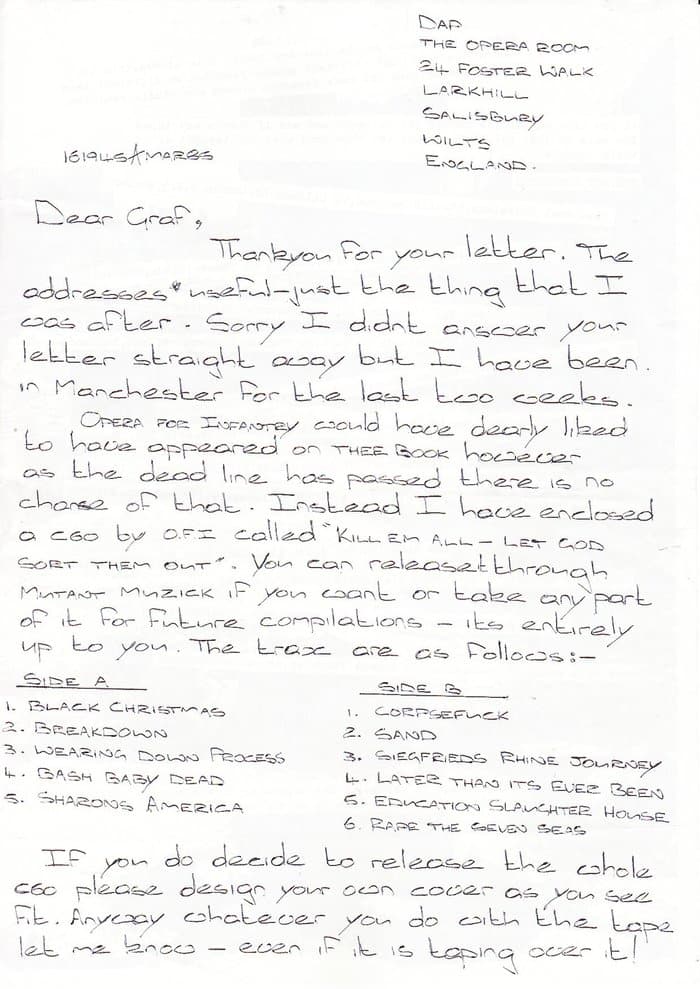 DAP
THE OPERA ROOM
24 FOSTER WALK
LARKHILL
SALISBURY
WILTS
ENGLAND.
161945AMAR85
Dear Graf,
Thankyou for your letter. The
addresses useful - just the thing that I
was after. Sorry I didnt answer your
letter straight away but I have been
in Manchester for the last two weeks.
OPERA FOR INFANTRY would have dearly liked
to have appeared on THEE BOOK however
as the dead line has passed there is no
chance of that. Instead I have enclosed
a C60 by O.F.I called "KILL EM ALL - LET GOD
SORT THEM OUT". You can release through
MUTANT MUZICK if you want or take any part
of it for future compilations - its entirely
up to you. The trax are as follows:-
SIDE A
1. BLACK CHRISTMAS
2. BREAKDOWN
3. WEARING DOWN PROCESS
4. BASH BABY DEAD
5. SHARONS AMERICA
SIDE B
1. CORPSEFUCK
2. SAND
3. SIEGFRIEDS RHINE JOURNEY
4. LATER THAN ITS EVER BEEN
5. EDUCATION SLAUGHTER HOUSE
6. RAPE THE SEVEN SEAS
If you do decide to release the whole
C60 please design your own cover as you see
fit. Anyway whatever you do with the tape
let me know - even if it is taping over it!